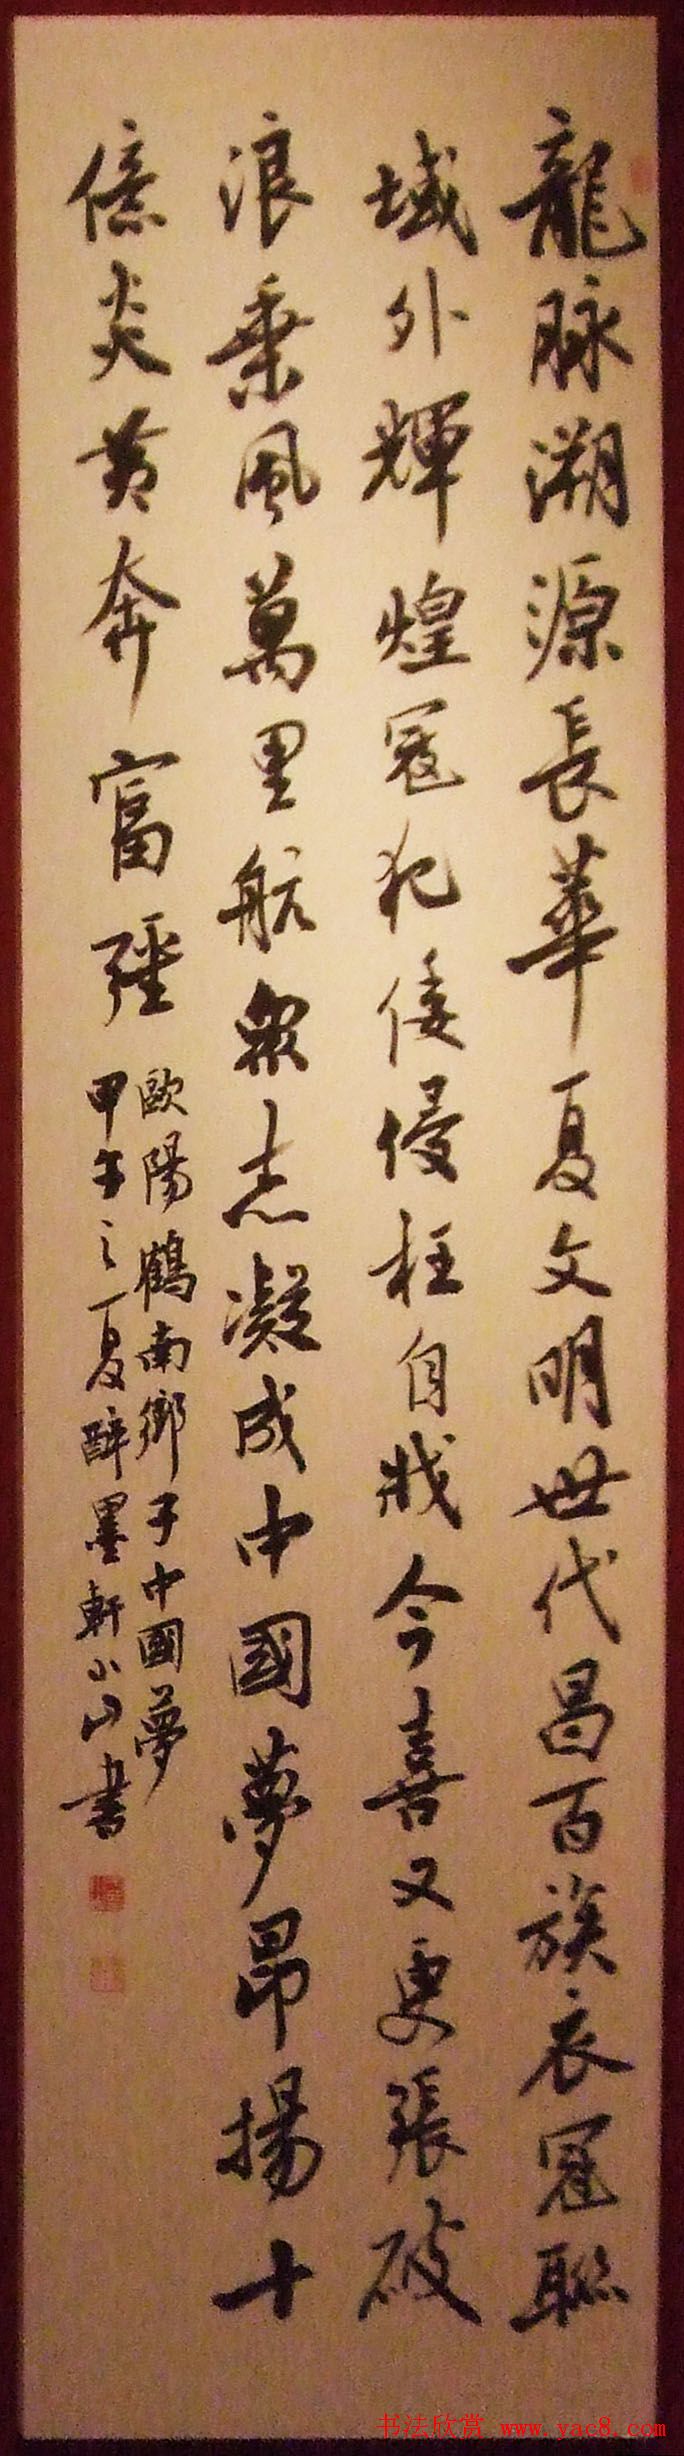 龍脉溯源長華夏文明世代昌百族衣冠聯
域外輝煌寇犯倭侵枉自戕今喜又更張破
浪乘風萬里航衆志凝成中國夢昂揚十
億炎黄奔富強
歐陽鶴南鄉子中國夢
甲午之夏醉墨軒小山書
书法欣赏 www.yac8.com